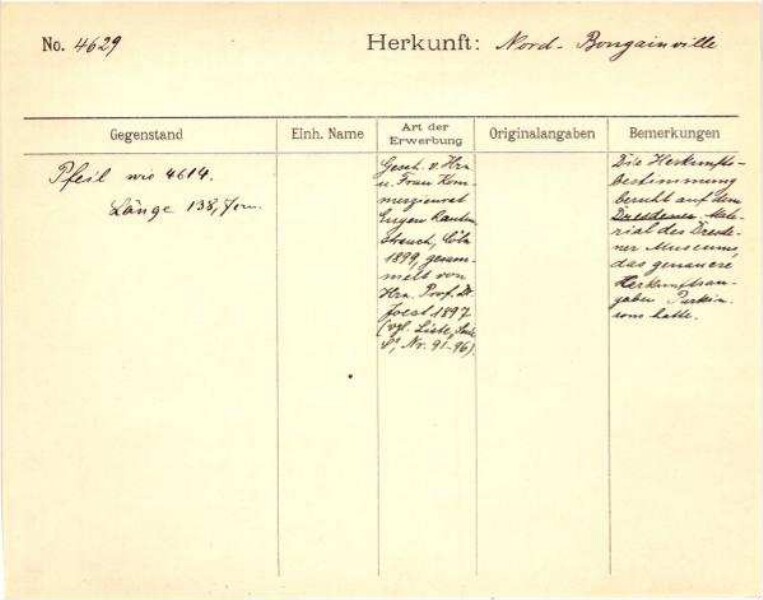 No. 4629
Herkunft: Nord-Bougainville
Gegenstand
Einh. Name
Art der
Erwerbung
Originalangaben
Bemerkungen
Pfeil wie 4614.
Länge 138,7 cm.
Gesch. v. Hrn
u. Frau Kom-
merzienrat
Eugen Rauten
strauch, Cöln
1899, gesam-
melt von
Hrn. Prof. Dr.
Joest 1897
(vgl. Liste,
Nr. 91-96).
Die Herkunfts-
bestimmung
beruht auf dem
Dresdener Mate-
rial des Dresde-
ner Museums,
das genauere
Herkunftsan-
gaben Parkin-
sons hatte.